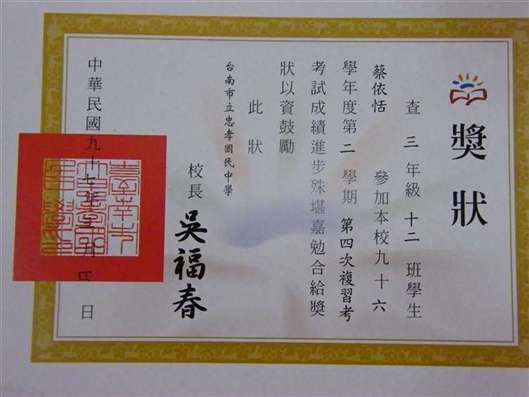 獎狀
查三年級十二班學生
蔡依恬 參加本校九十六
學年度第二學期第四次複習考
考試成績進步殊堪嘉勉合給獎
狀以資鼓勵
此狀
台南市立忠孝國民中學
校長 吳福春
中華民國九十七年 月 日